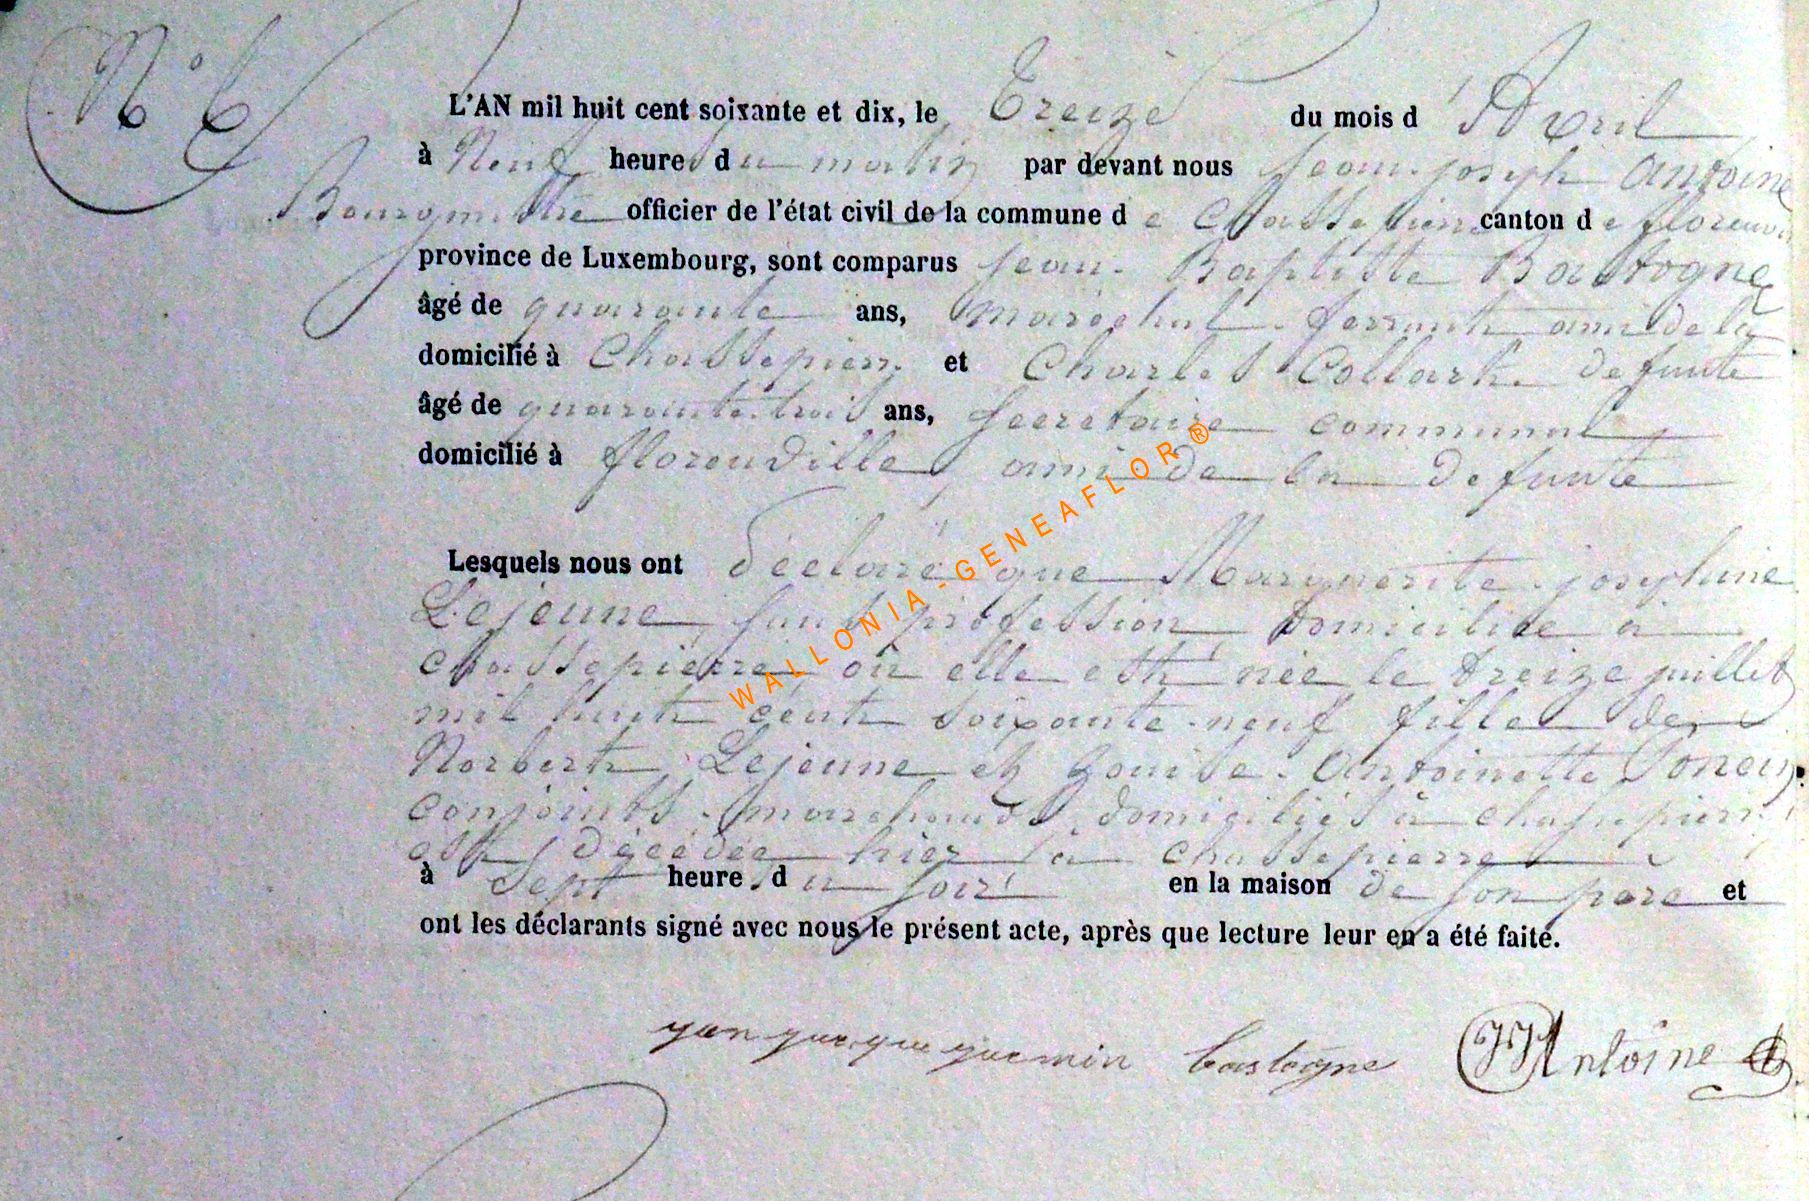 N° 6
L'AN mil huit cent soixante et dix, le Treize du mois d'Avril
à Neuf heures du matin par devant nous Jean-joseph Antoine
Bourgmestre officier de l'état civil de la commune de Chassepierre canton de florenville
province de Luxembourg, sont comparus jean-Baptiste Bastogne
âgé de quarante ans, maréchal-ferrant ami de la
domicilié à Chassepierre et Charles Collart défunte
âgé de quarante-trois ans, Secrétaire communal
domicilié à florenville, ami de la défunte
Lesquels nous ont déclaré que Marguerite-joséphine
Lejeune, sans profession domiciliée à
chassepierre, où elle est née le treize juillet
mil huit cent soixante-neuf fille de
Norbert Lejeune et Louise-Antoinette
conjoints-marchands, domiciliés à chassepierre,
est décédée hier à chassepierre
à Sept heures du soir en la maison de son père et
ont les déclarants signé avec nous le présent acte, après que lecture leur en a été faite.
bastogne JJAntoine
WALLONIA-GENEAFLOR®